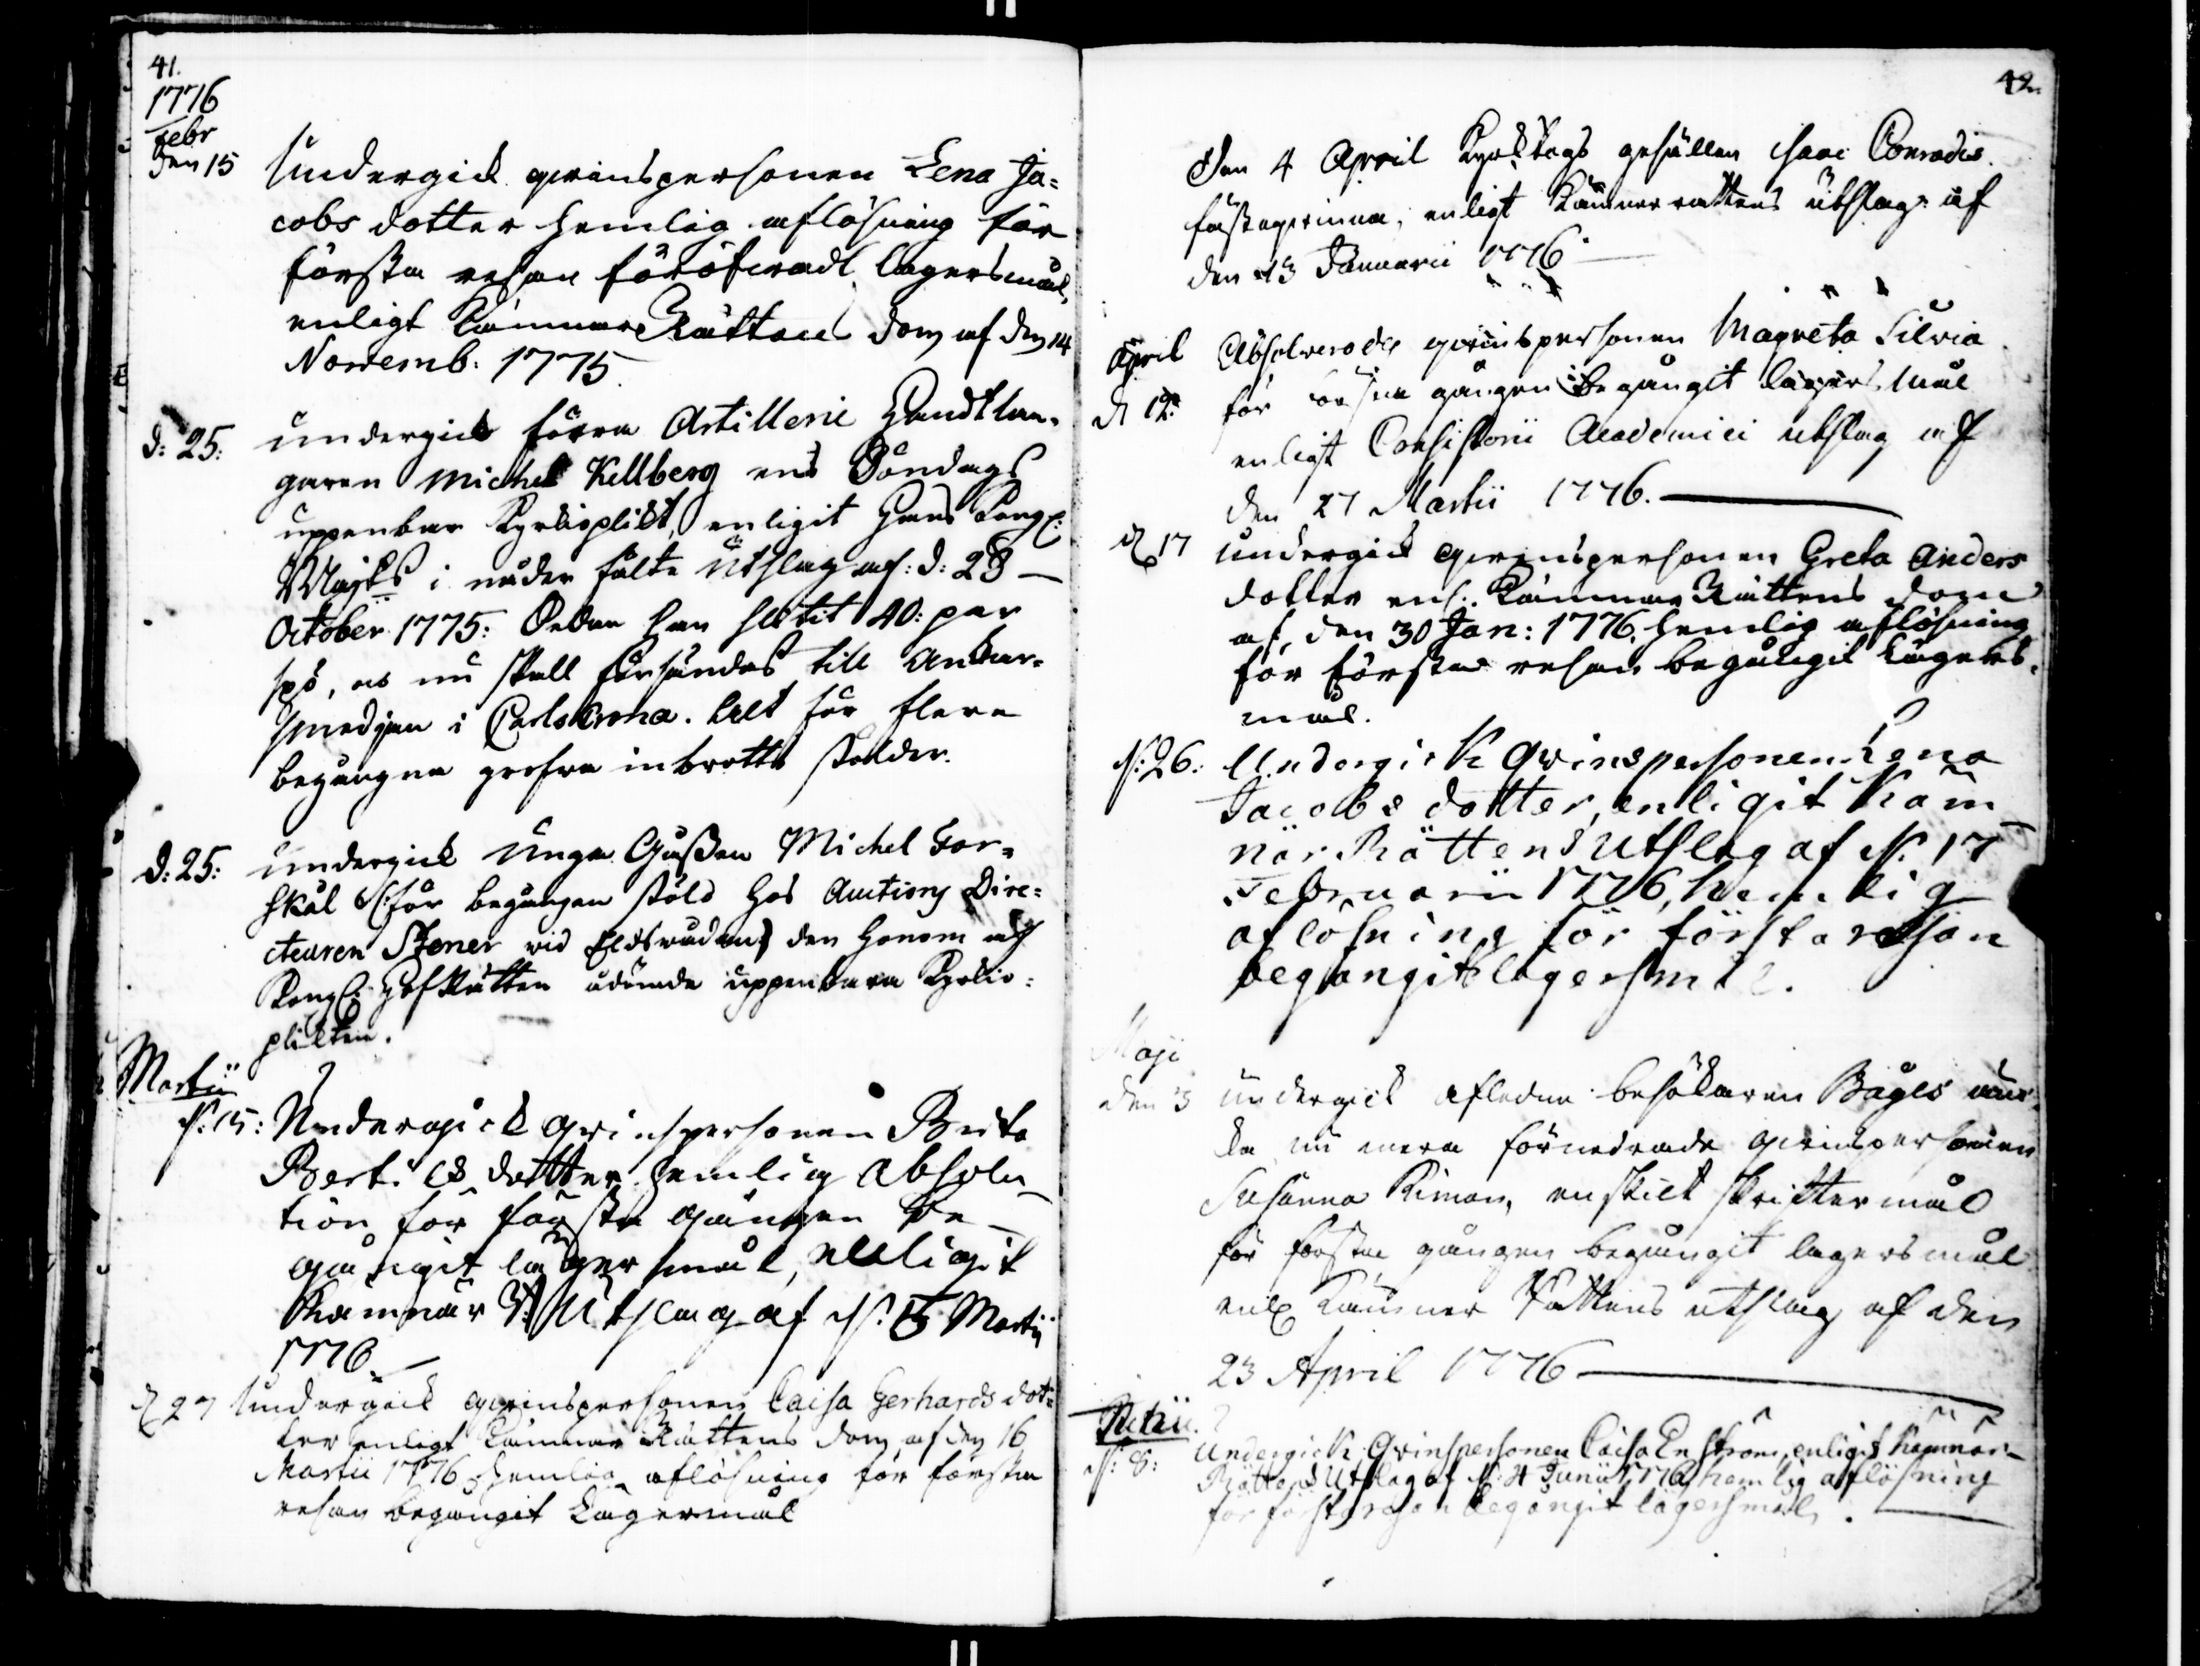 41.
1776
Febr
den 15
Undergick qvinspersonen Lena Ja=
cobs dotter hemlig aflösning för
första resan föröfvadt lägersmål,
enligt Kämners Rättens dom af den 14
Novemb: 1775.
d: 25:
undergick förra Artillerie Handtlan-
garen Michel Kellberg ens Söndags
uppenbar Kyrkioplikt, enligit Hans Kongl:
Maj:ts i nåder fälte Utslag af: d: 23 —
October 1775: Sedan han slitit 40: par
spö, os nu skall försändas till Ankar-
smedjan i Carlskrona. Alt för flera
begångna grofva inbrotts stölder.
d: 25:
undergick Unga Gåssen Michel For-
skål för begången stöld hos Auctions Dire=
cteuren Stener vid Eldsvådan den honom af
Kongl: Hofrätten ådömde uppenbara Kyrkio=
plikten.
Martii
d: 15:
Undergick qvinspersonen Brita
Bertils dotter hemlig absolu-
tion för första gången be-
gångit lägersmål, enligit
Kämnär R: Utslag af d: 5 Martii
1776.
d 27
Undergick qvinspersonen Caisa Gerhards dot=
ter enligt Kämnär Rättens dom af den 16
Martii 1776 hemlig aflösning för första
resan begångit Lägersmål
42.
Den 4 April Kyrktogs gesällen Isaac Conradis
fästeqvinna, enligt Kämnerrättens utslag af
den 13 Januarii 1776 —
April
d 12.
Absolverades qvinspersonen Magreta Silvia
för första gången begångit lägersmål
enligt Consistorii Academici utslag af
den 27 Martii 1776. —
d 17
undergick qvinspersonen Greta Anders
dotter enl: Kämnär Rättens dom
af den 30 Jan: 1776, hemlig aflösning
för första resan begångit Lägers-
mål.
d: 26:
Undergick Qvinspersonen Lena
Jacobs dotter, enligit Käm-
när Rättens Utslag af d: 17
Februarii 1776, hemlig
aflösning för första resan
begångit lägersmål.
Maji
den 3
undergick afledne besökaren Båges
nu mera förnedrade qvinspersonen
Susanna Kiman, enskilt skriftermål
för första gången begångit lägersmål
enl Kämner Rättens utslag af den
23 April 1776 —
Junii.
d: 8:
Undergick Qvinspersonen Caisa Enström, enligit Kämnär-
Rättens Utslag af d: 4 Junii 1776, hemlig aflösning
för första resan begångit lägersmål. —